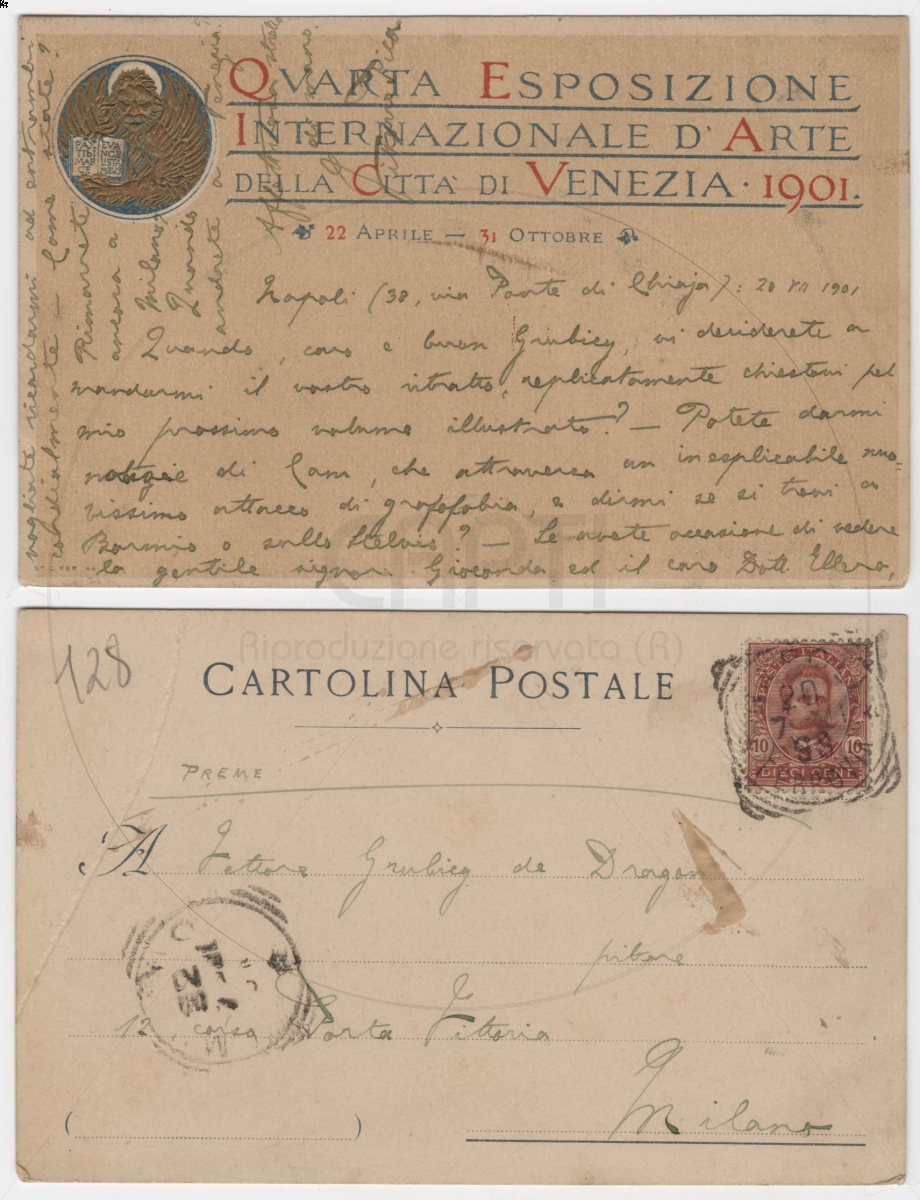 QVARTA ESPOSIZIONE
INTERNAZIONALE D'ARTE
DELLA CITTÀ DI VENEZIA · 1901.
22 APRILE — 31 OTTOBRE
PAX TIBI MARCE EVANGELISTA MEVS
Napoli (38, via Ponte di Chiaja): 20 VII 1901
Quando, caro e buon Grubicy, vi deciderete a
mandarmi il vostro ritratto, replicatamente chiestovi pel
mio prossimo volume illustrato? — Potete darmi
notizie di Cam, che attraversa un inesplicabile nuo-
vissimo attacco di grafofobia, e dirmi se si trovi a
Bormio o sullo Stelvio? — Se avete occasione di vedere
la gentile signora Gioconda ed il caro Dott. Ellero,
vogliate ricordarmi ad entrambi
cordialmente — Come state?
Rimarrete
ancora a
Milano?
Quando
andrete a
Affettuosa stretta
di mano
Vittorio Pica
CAPTI
Riproduzione riservata (R)
128
CARTOLINA POSTALE
PREME
A Vittore Grubicy de Dragon
pittore
12 corso Porta Vittoria
Milano
10 10
DIECI CENT